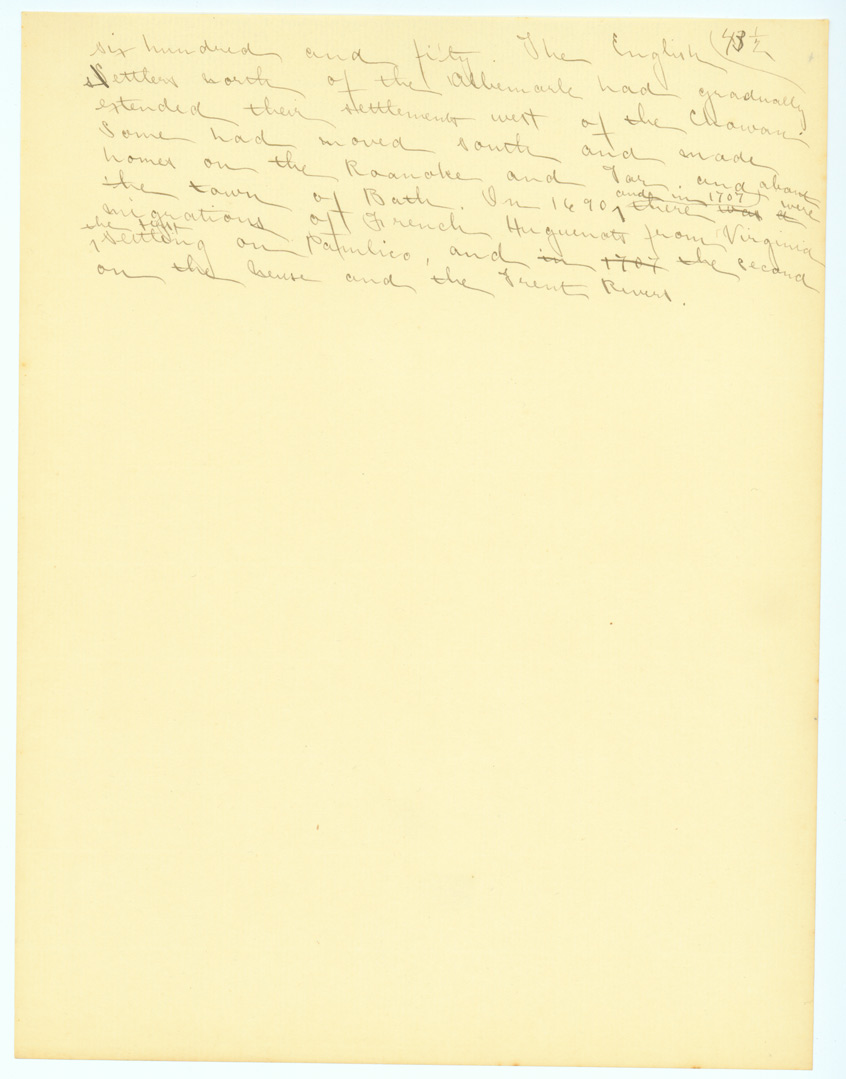 43 1/2
six hundred and fifty. The English
settlers north of the Albemarle had gradually
extended their settlements west of the Chowan.
Some had moved south and made
homes on the Roanoke and Tar. and about
the town of Bath. In 1690, and in 1707 there was a were
migrations of French Huguenots from Virginia
the first
settling on Pamlico, and in 1707 the second
on the Neuse and the Trent Rivers.